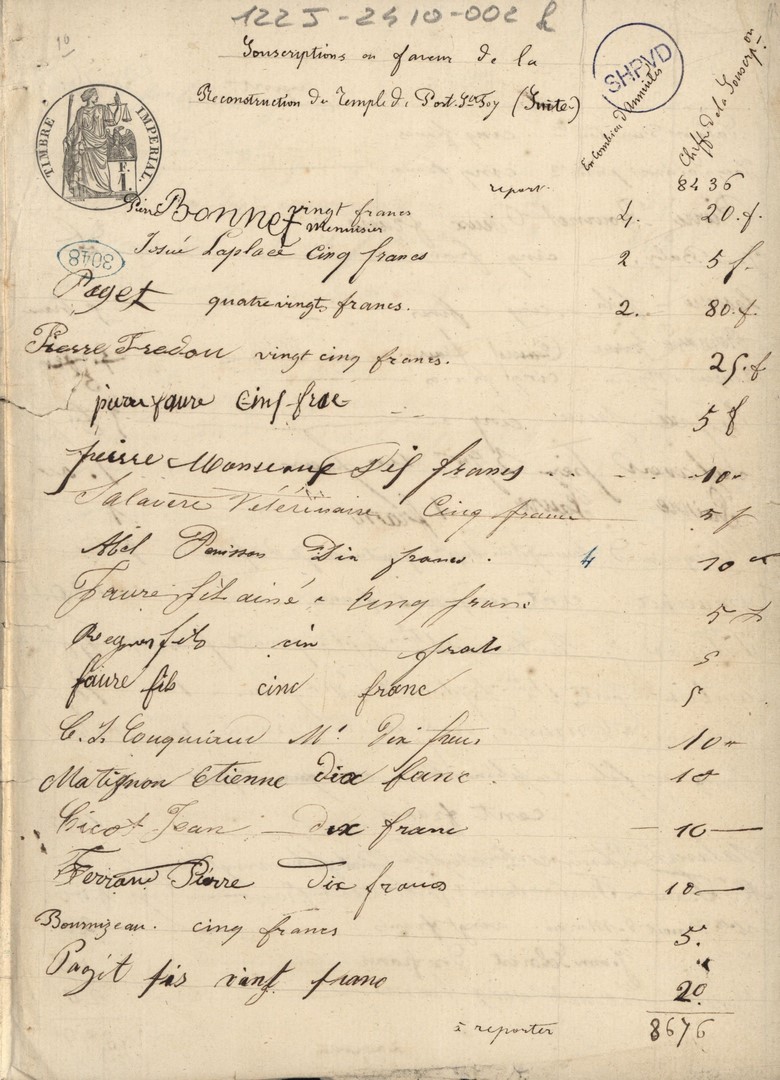 1225-2410-002
10
SHPVD
Souscriptions en faveur de la
Reconstruction du Temple de Port-Ste Foy (Suite)
En Combien d'Annuités
Chiffre de la Souscrip.on
TIMBRE IMPERIAL.
F. 1.
report. 8436
Pierre Bonnet vingt francs 4. 20.f.
Menuisier
Josué Laplace Cinq francs 2 5 f.
3048
Paget quatrevingt francs. 2. 80.f.
Pierre Fredou vingt cinq francs. 25.f
pierre faure Cinq 5 f
pierre Dis francs 10
Salavère Vétérinaire Cinq francs 5 f
Abel Dix francs. 4 10
Faure fils ainé Cinq franc 5 f
fils cin 5
faure fils cinc franc 5
Dix 10
Matignon Etienne dix franc. 10
Jean dix franc 10
Ferrand Pierre Dix francs 10
Bournizeau. cinq francs 5.
Pagit fis vint franc 20
à reporter 8676